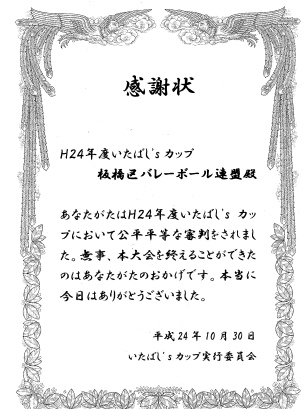 感謝状
H24年度いたばし's カップ
板橋区バレーボール連盟殿
あなたがたはH24年度いたばし's カッ
プにおいて公平平等な審判をされまし
た。無事、本大会を終えることができた
のはあなたがたのおかげです。本当に
今日はありがとうございました。
平成24年10月30日
いたばし's カップ実行委員会